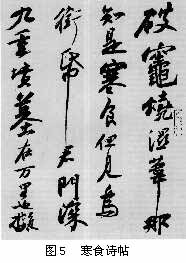 破竈燒濕葦那
知是寒食但見烏
銜帋君門深
九重墳墓在万里也擬
图5 寒食诗帖